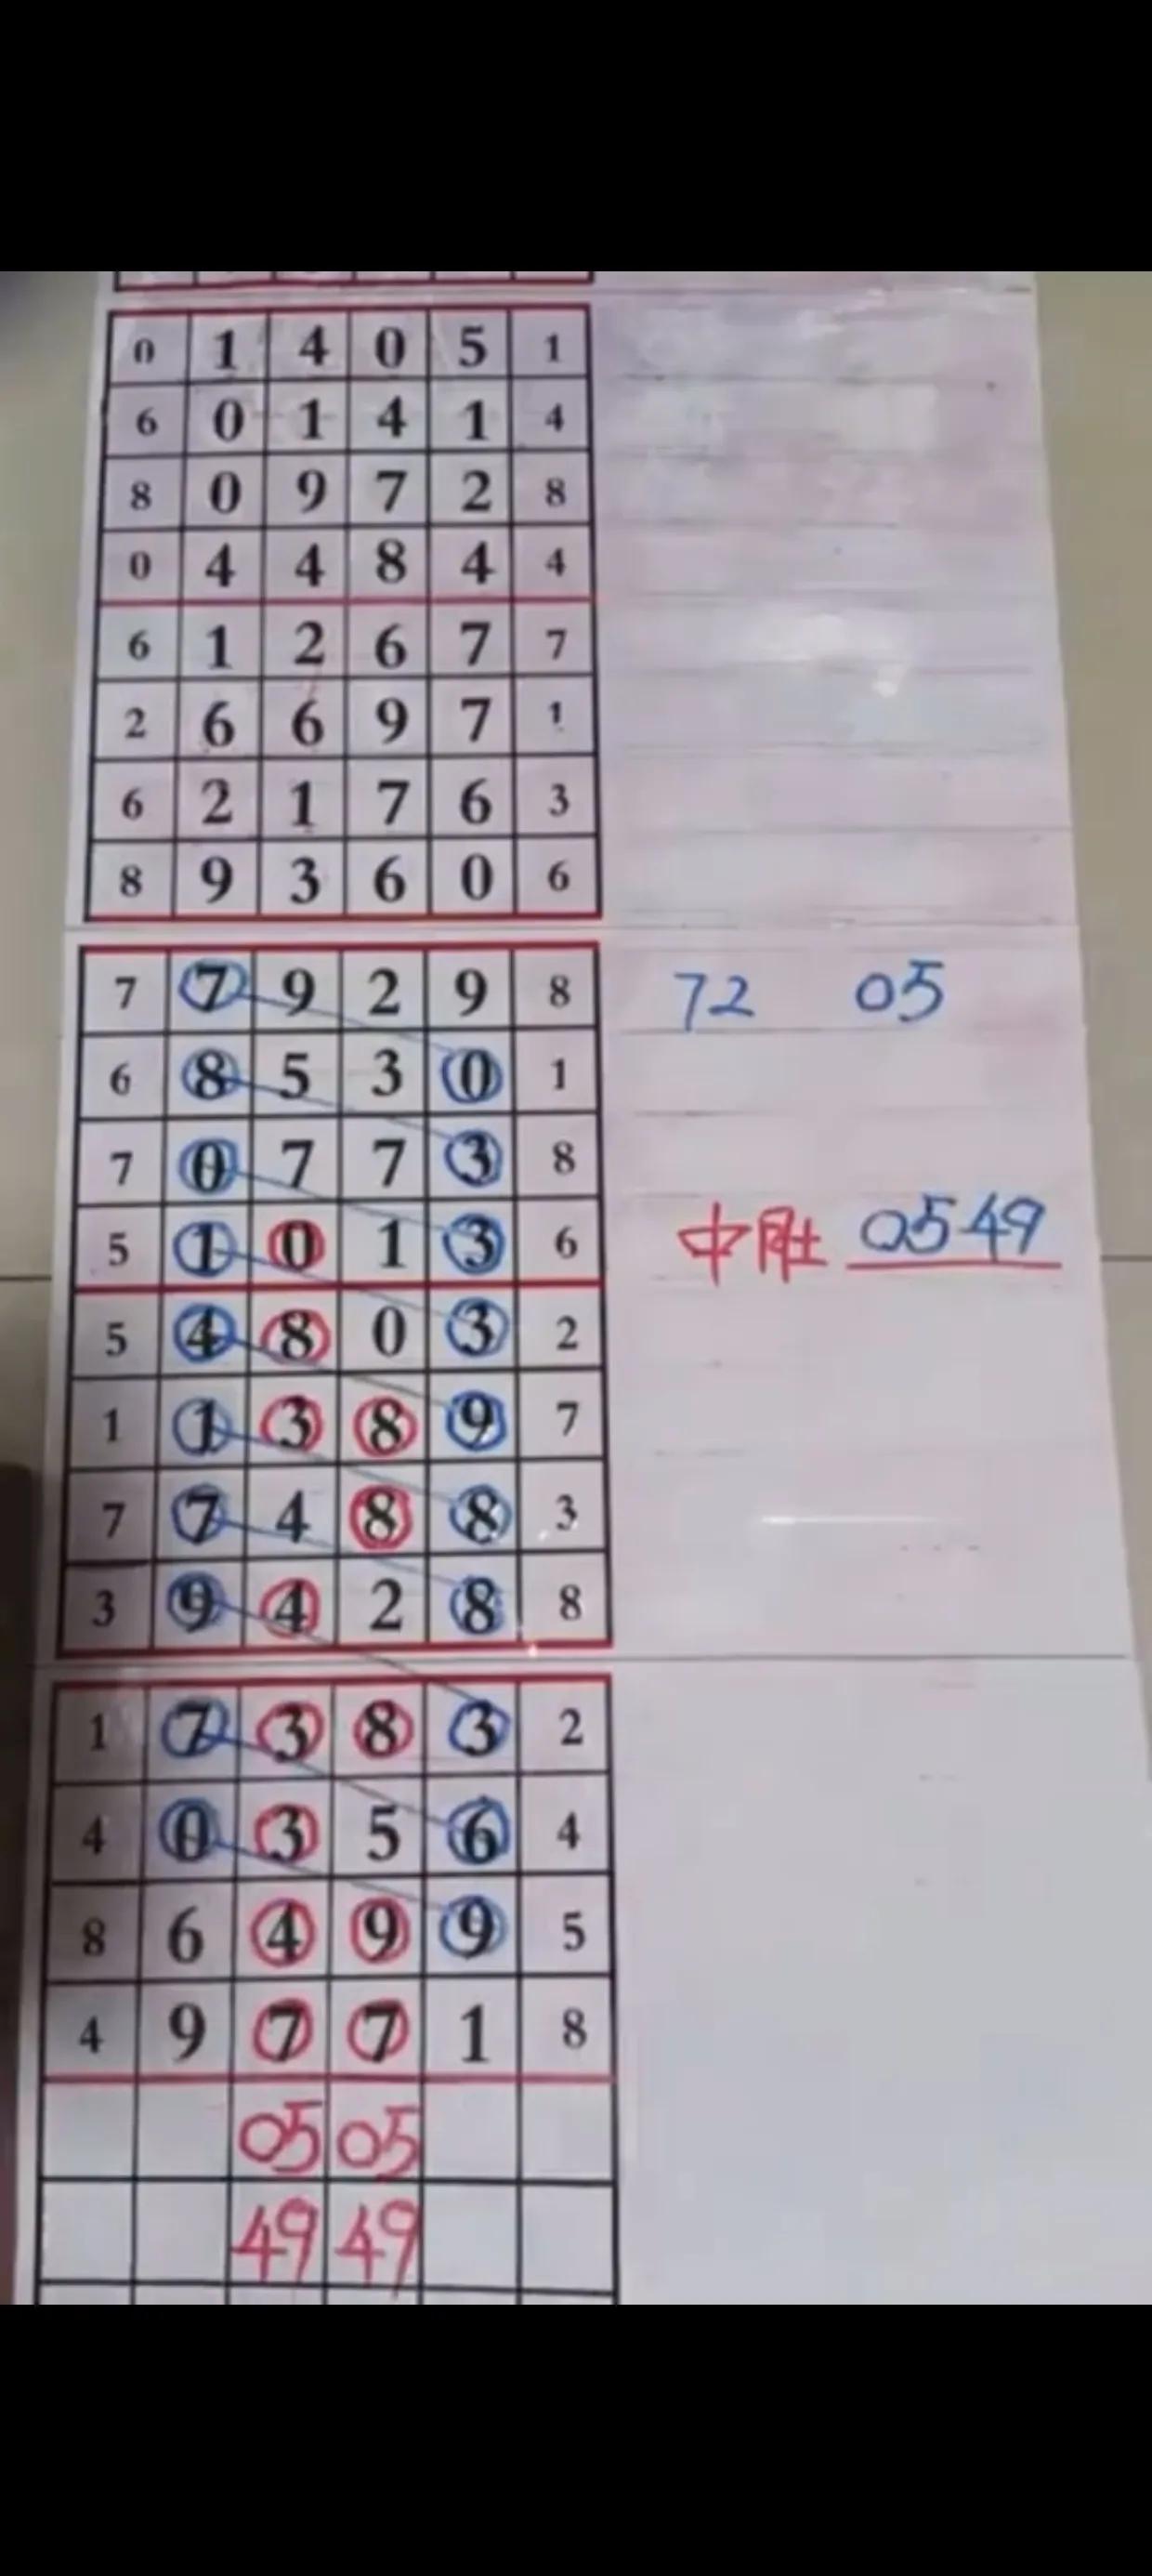 0 1 4 0 5 1
6 0 1 4 1 4
8 0 9 7 2 8
0 4 4 8 4 4
6 1 2 6 7 7
2 6 6 9 7 1
6 2 1 7 6 3
8 9 3 6 0 6
7 7 9 2 9 8 72 05
6 8 5 3 0 1
7 0 7 7 3 8
5 1 0 1 3 6 中肚 0549
5 4 8 0 3 2
1 1 3 8 9 7
7 7 4 8 8 3
3 9 4 2 8 8
1 7 3 8 3 2
4 0 3 5 6 4
8 6 4 9 9 5
4 9 7 7 1 8
05 05
49 49